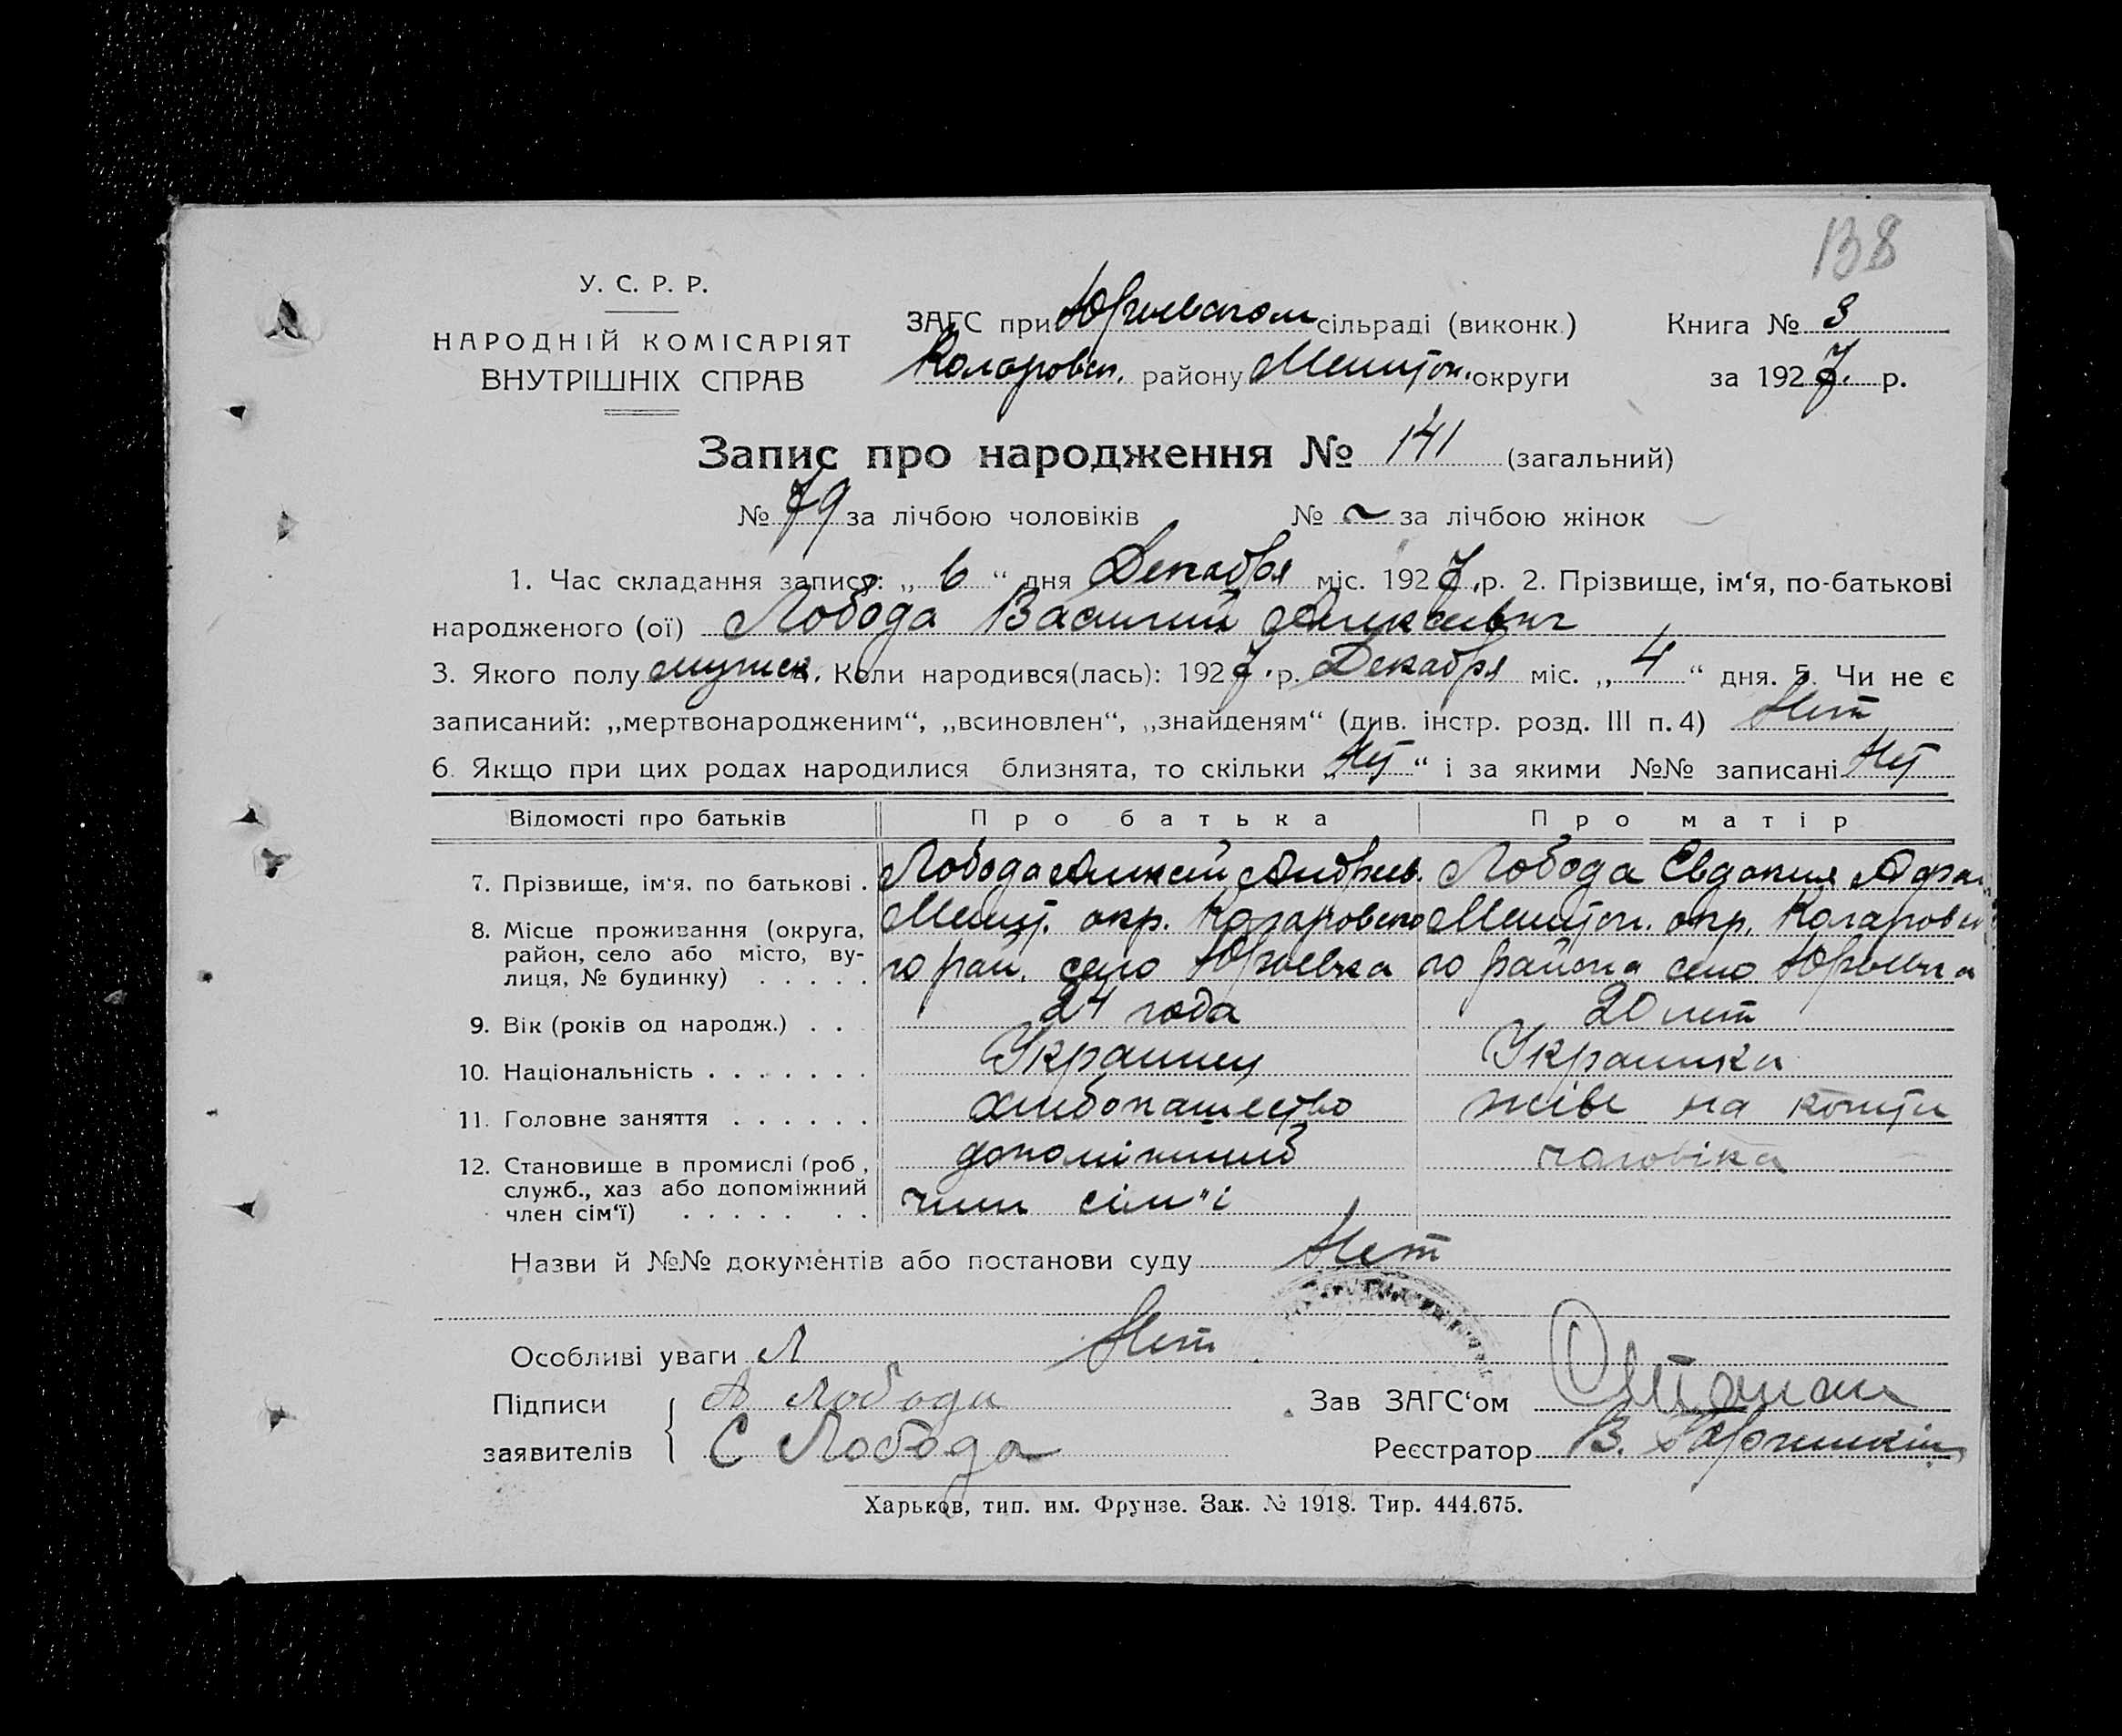 138
У. С. Р. Р.
НАРОДНІЙ КОМІСАРІЯТ
ВНУТРІШНІХ СПРАВ
ЗАГС при Юрьевском сільраді (виконк.) Книга № 3
Коларовск. району Мелитоп. округи за 1927 р.
Запис про народження № 141 (загальний)
№ 79 за лічбою чоловіків № ~ за лічбою жінок
1. Час складання запису: „ 6 “ дня Декабря міс. 1927 р. 2. Прізвище, ім‘я, по-батькові
народженого (ої) Лобода Василий Алексеевич
3. Якого полу мужск. Коли народився(лась): 1927 р. Декабря міс. „ 4 “ дня. 5. Чи не є
записаний: „мертвонародженим“, „всиновлен“, „знайденям“ (див. інстр. розд. III п. 4) Нет
6. Якщо при цих родах народилися близнята, то скільки „ Нет “ і за якими №№ записані Нет
Відомості про батьків Про батька Про матір
7. Прізвище, ім‘я, по батькові . Лобода Алексей Андреев. Лобода Евдокия
8. Місце проживання (округа, Мелит. окр. Коларовско Мелитоп. окр. Коларовск
район, село або місто, ву- го рай. село Юрьевка го района село Юрьевка
лиця, № будинку) . . . . .
9. Вік (років од народж.) . . 24 года 20 лет
10. Національність . . . . . . . Украинец Украинка
11. Головне заняття . . . . . . хлебопашество живе на кошти
12. Становище в промислі (роб., допоміжний чоловіка
служб., хаз або допоміжний
член сім‘ї) . . . . . . . член сім"ї
Назви й №№ документів або постанови суду Нет
Особливі уваги Нет
Підписи А Лобода Зав ЗАГС‘ом
заявителів С Лобода Реєстратор В.
Харьков, тип. им. Фрунзе. Зак. № 1918. Тир. 444.675.